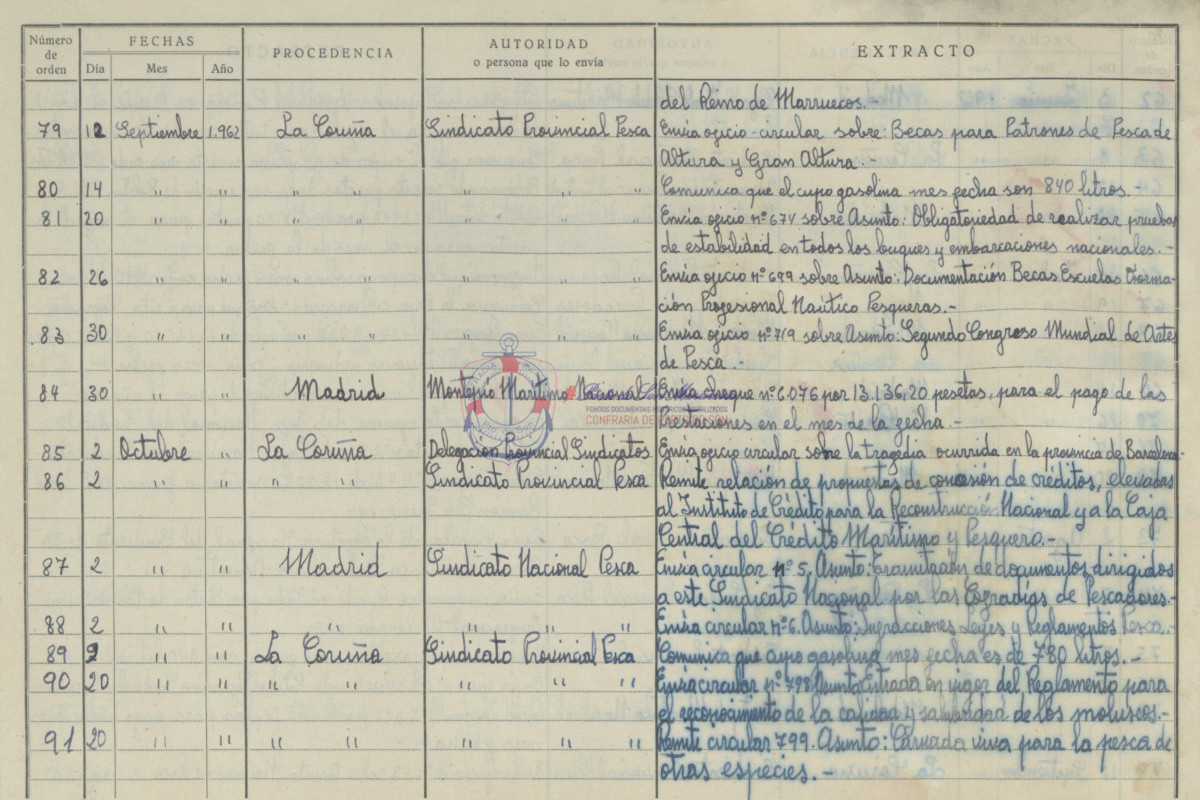 Número de orden FECHAS Día Mes Año PROCEDENCIA AUTORIDAD o persona que lo envía EXTRACTO
del Reino de Marruecos.-
79 12 Septiembre 1.962 La Coruña Sindicato Provincial Pesca Envia oficio-circular sobre: Becas para Patrones de Pesca de
Altura y Gran Altura.-
80 14 " " " " " " " Comunica que el cupo gasolina mes fecha son 840 litros.-
81 20 " " " " " " " Envia oficio nº 674 sobre Asunto: Obligatoriedad de realizar pruebas
de estabilidad en todos los buques y embarcaciones nacionales.-
82 26 " " " " " " " Envia oficio nº 699 sobre Asunto: Documentación Becas Escuelas Forma-
ción Profesional Naútico Pesqueras.-
83 30 " " " " " " " Envia oficio nº 719 sobre Asunto: Segundo Congreso Mundial de Artes
de Pesca.-
84 30 " " Madrid Montepio Marítimo Nacional Envia cheque nº 6.076 por 13.136,20 pesetas, para el pago de las
Prestaciones en el mes de la fecha.-
FONDOS DOCUMENTAIS
CONFRARÍA DE
85 2 Octubre " La Coruña Delegación Provincial Sindicatos Envia oficio circular sobre la tragedia ocurrida en la provincia de Barcelona.
86 2 " " " Sindicato Provincial Pesca Remite relación de propuestas de concesión de créditos, elevadas
al Instituto de Crédito para la Reconstrucción Nacional y a la Caja
Central del Crédito Marítimo y Pesquero.-
87 2 " " Madrid Sindicato Nacional Pesca Envia circular nº 5. Asunto: Tramitación de documentos dirigidos
a este Sindicato Nacional por las Cofradías de Pescadores.-
88 2 " " " " " " Envia circular nº 6. Asunto: Infracciones Leyes y Reglamentos Pesca.-
89 9 " " La Coruña Sindicato Provincial Pesca Comunica que cupo gasolina mes fecha es de 780 litros.-
90 20 " " " " " " " Envia circular nº 798 Asunto Entrada en vigor del Reglamento para
el reconocimiento de la calidad y salubridad de los moluscos.-
91 20 " " " " " " " Remite circular 799. Asunto: Carnada viva para la pesca de
otras especies.-